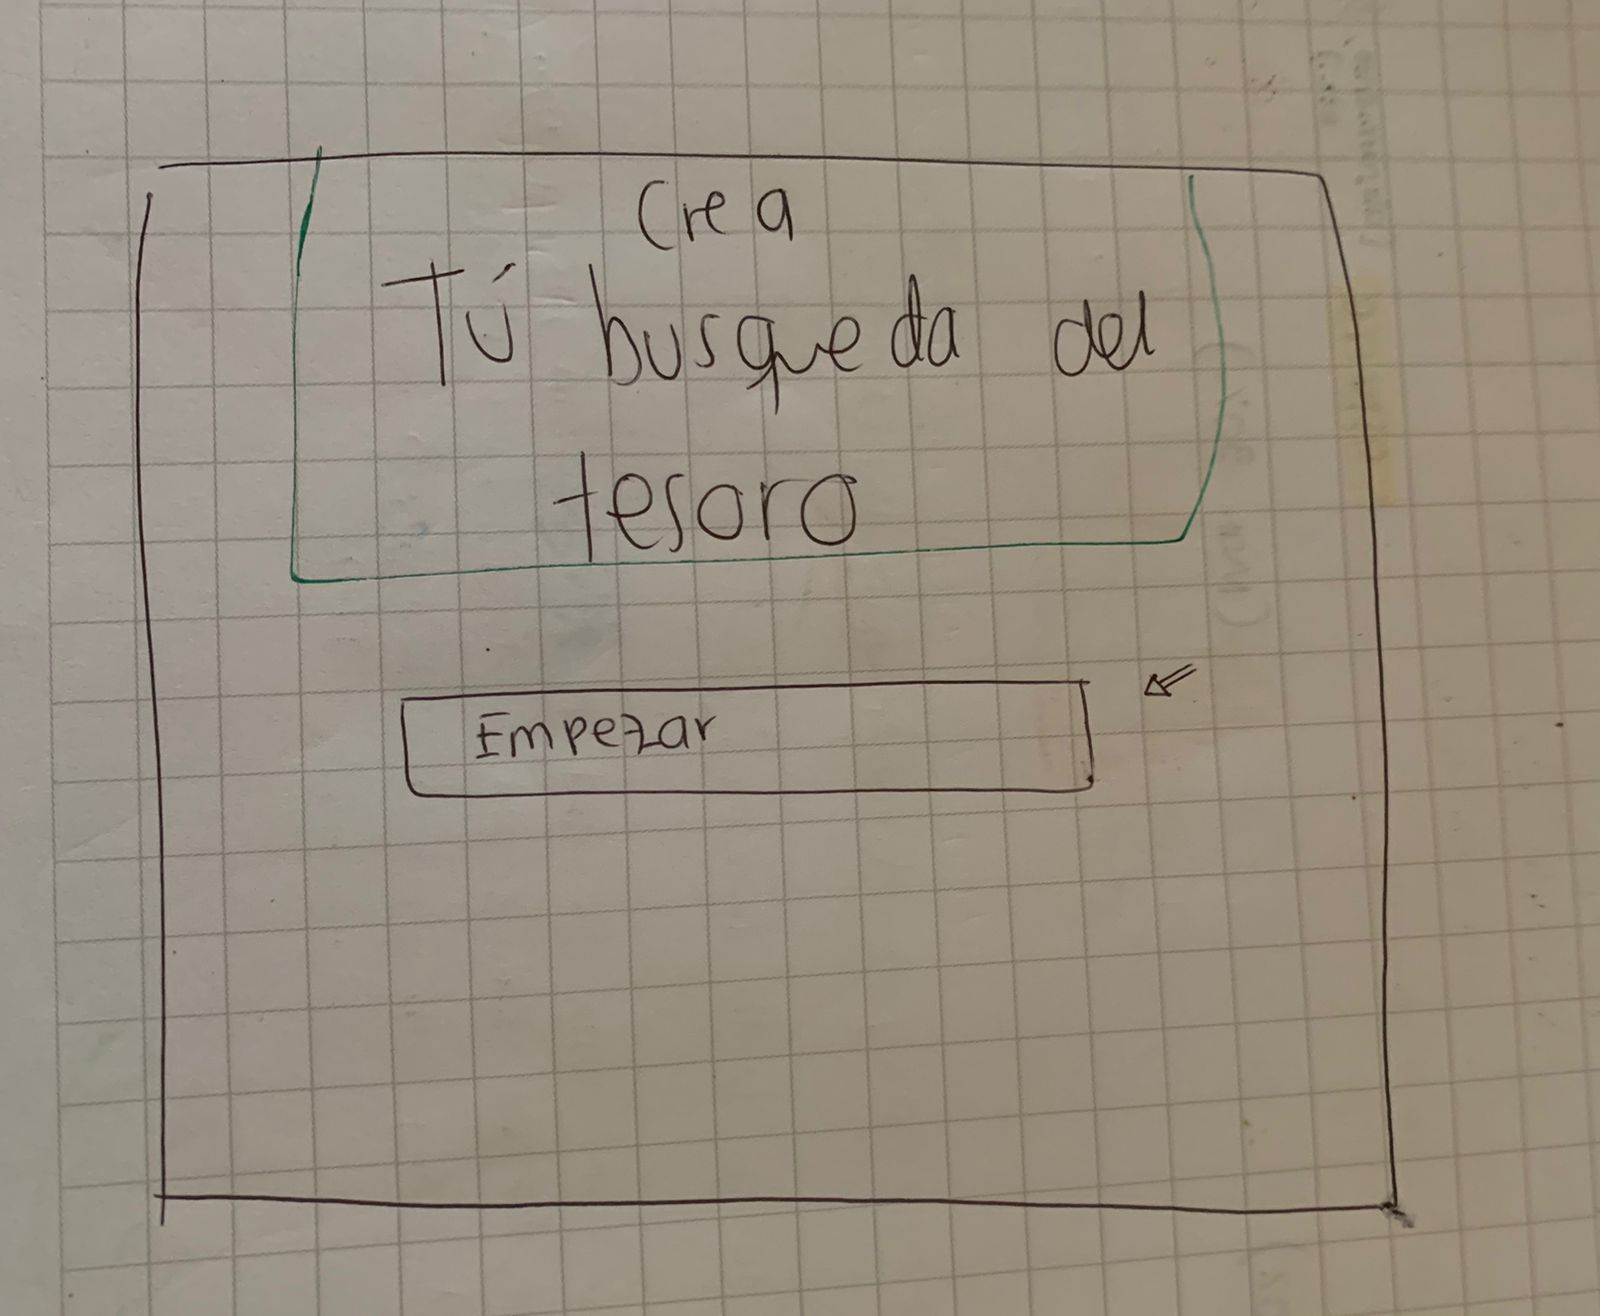 Crea
Tú busqueda del
tesoro
Empezar